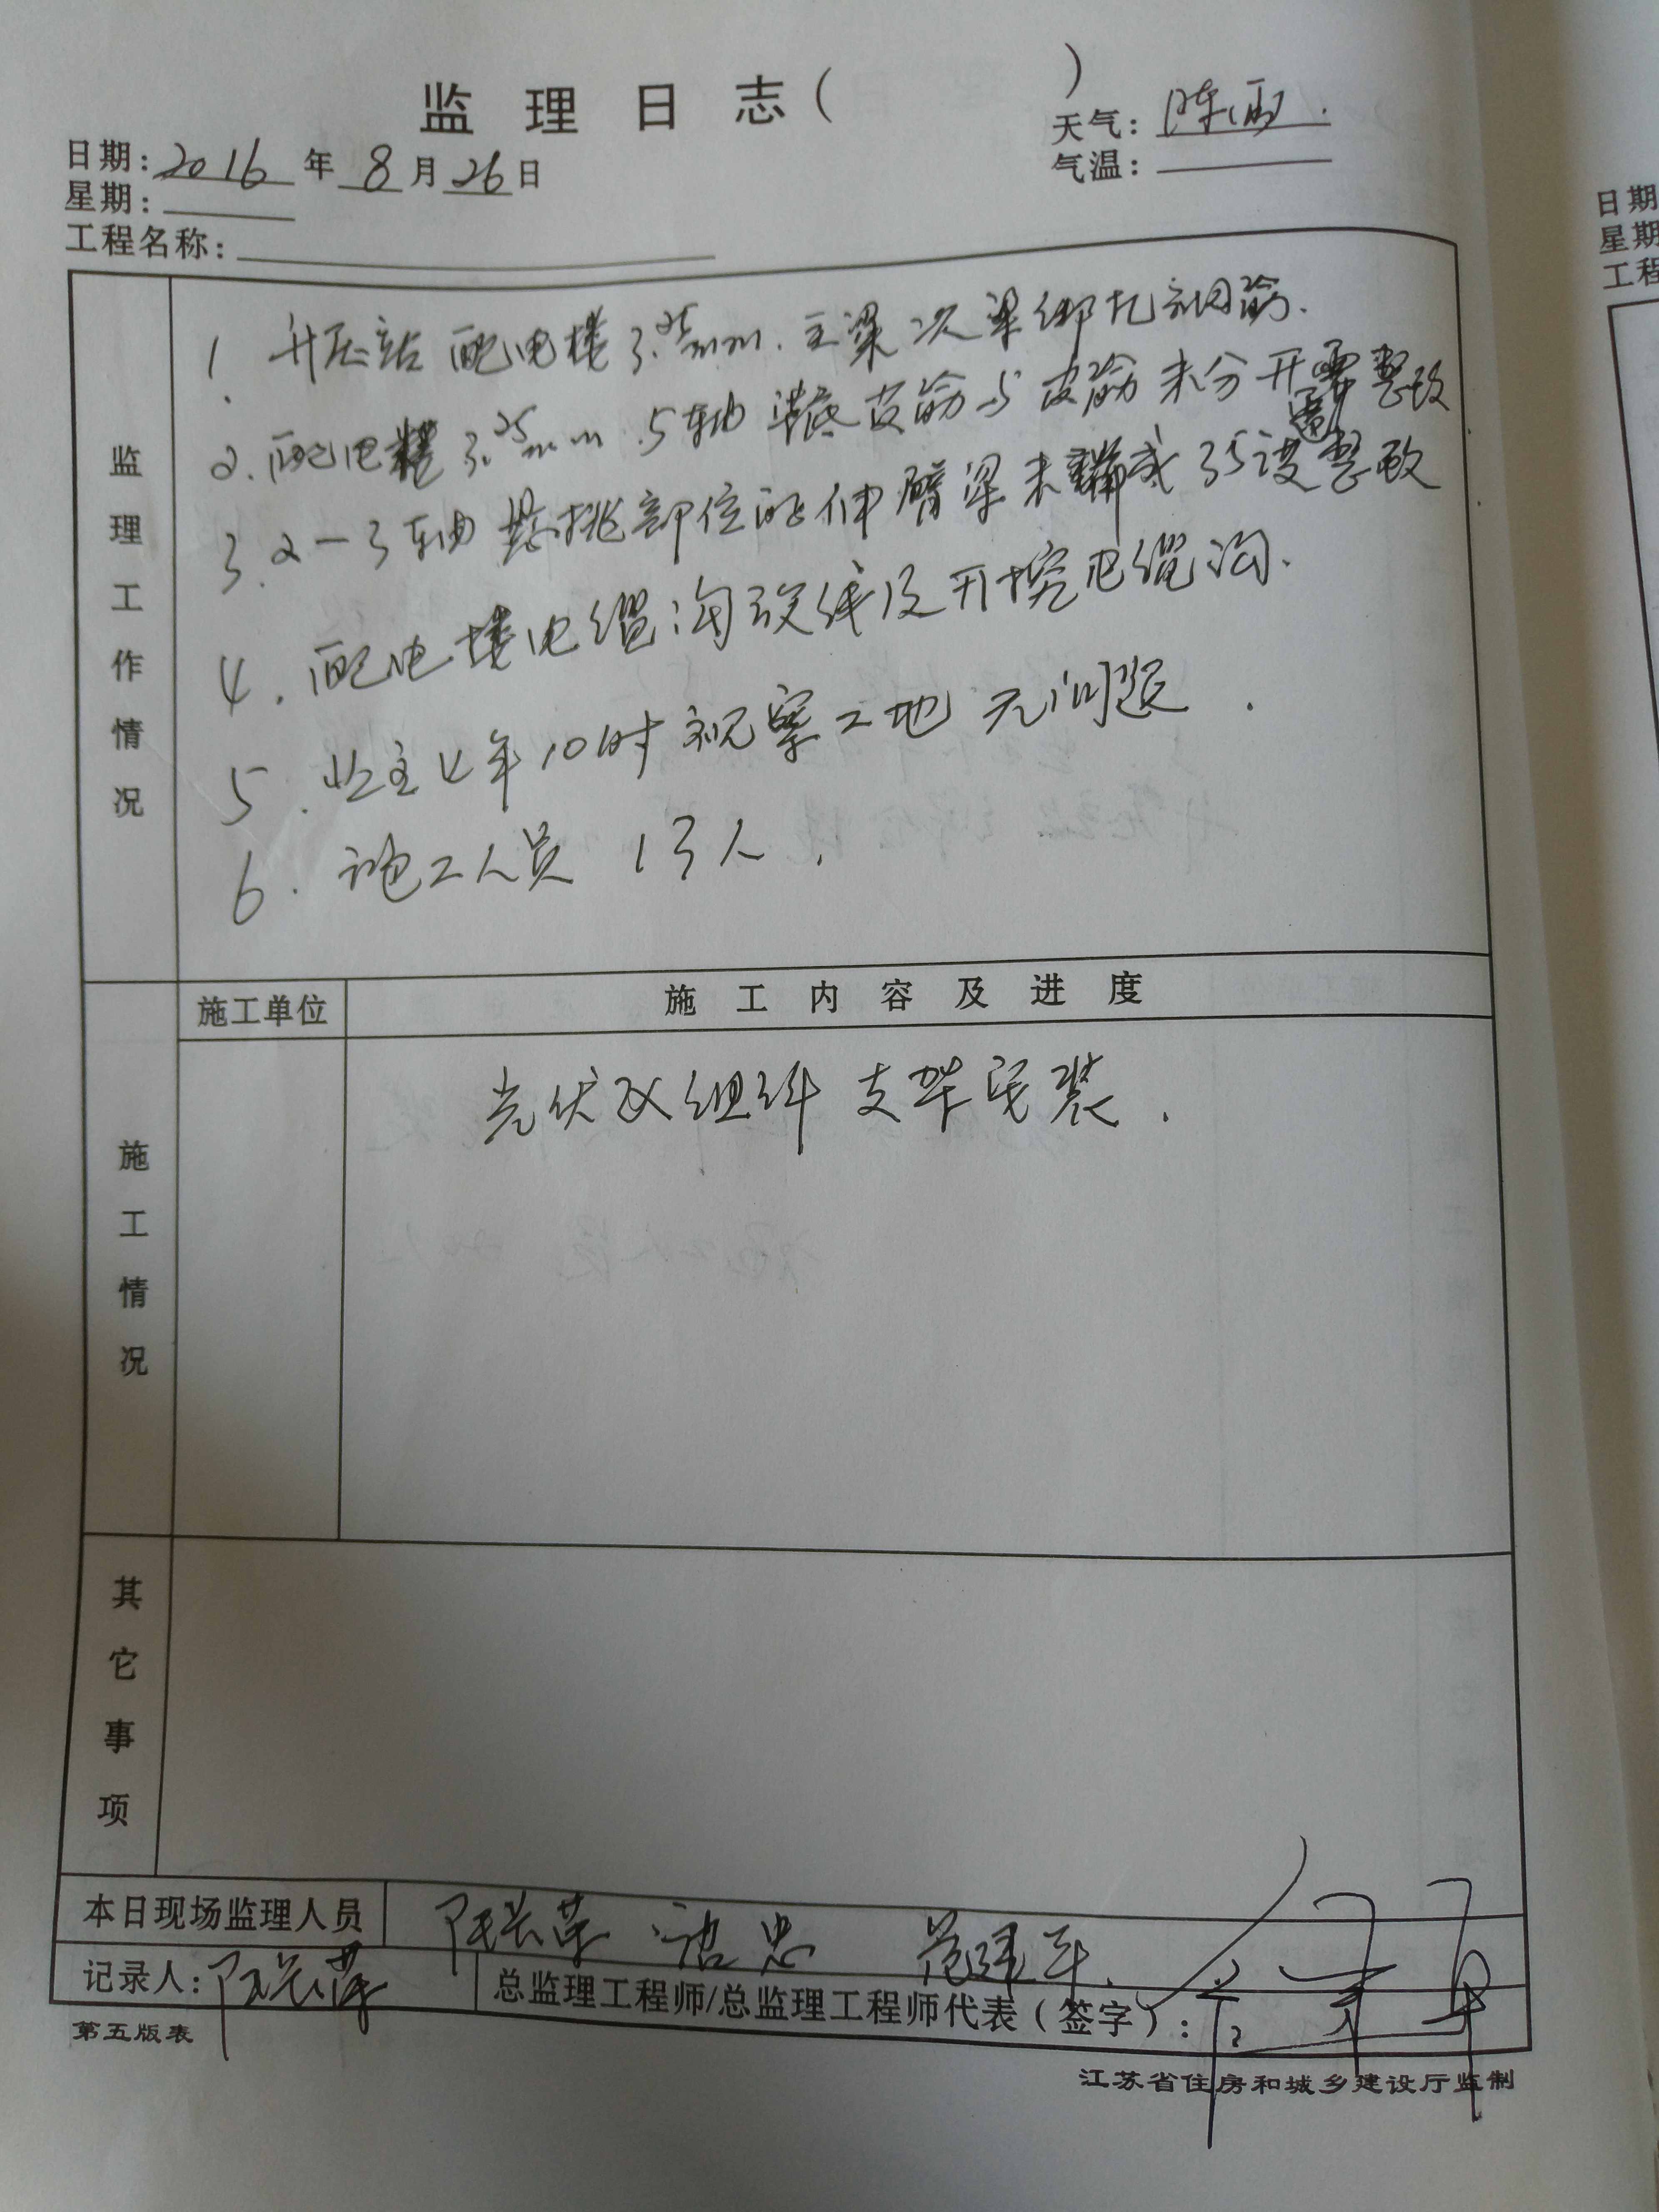 监理日志( )
天气：阵雨.
日期：2016年8月26日
气温：
星期：
工程名称：
监理工作情况
1. 升压站配电楼3.25mm.主梁次梁绑扎钢筋.
2.配电楼3.25mm.5轴 皮筋与皮筋未分开需整改
3.2一3轴悬挑部位的伸臂梁未 整改
4.配电楼电缆沟放线及开挖电缆沟.
5.业主 10时视察工地无问题.
6.施工人员 13人.
施工单位
施工内容及进度
施工情况
光伏区组件支架安装.
其它事项
本日现场监理人员
记录人：
总监理工程师/总监理工程师代表(签字)：
第五版表
江苏省住房和城乡建设厅监制
日期
星期
工程